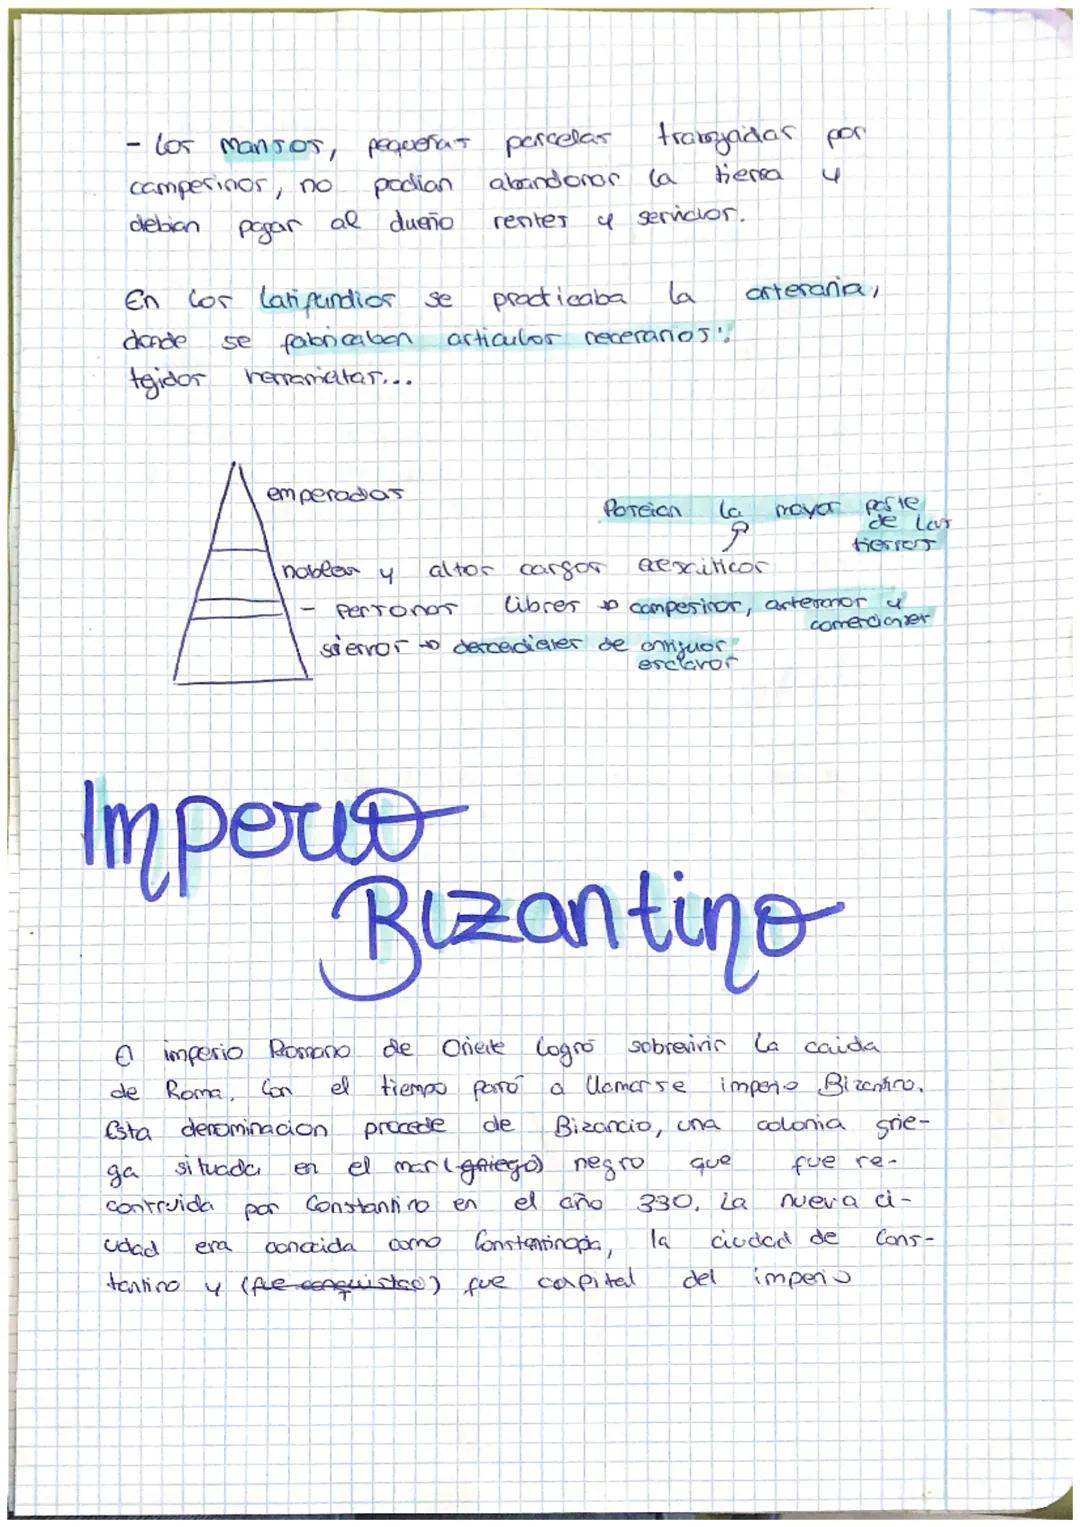 - Los mansos, pequeñas parcelas trabajadas por
campesinos, no podían abandonar la tierra y
debían pagar al dueño rentas y servicios.
En los latifundios se practicaba la artesanía,
donde se fabricaban artículos necesarios:
tejidos herramientas...
emperador
Poseían la mayor parte
de las
tierras
nobles y altos cargos eclesiásticos
- personas libres → campesinos, artesanos y
comerciantes
siervos → descendientes de antiguos
esclavos
Imperio
Bizantino
El imperio Romano de Oriente logró sobrevivir la caída
de Roma. Con el tiempo pasó a llamarse imperio Bizantino.
Esta denominacion procede de Bizancio, una colonia grie-
ga situada en el mar (griego) negro que fue re-
contruida por Constantino en el año 330. La nueva ci-
udad era conocida como Constantinopla, la ciudad de Cons-
tantino y (fue conquistao) fue capital del imperio